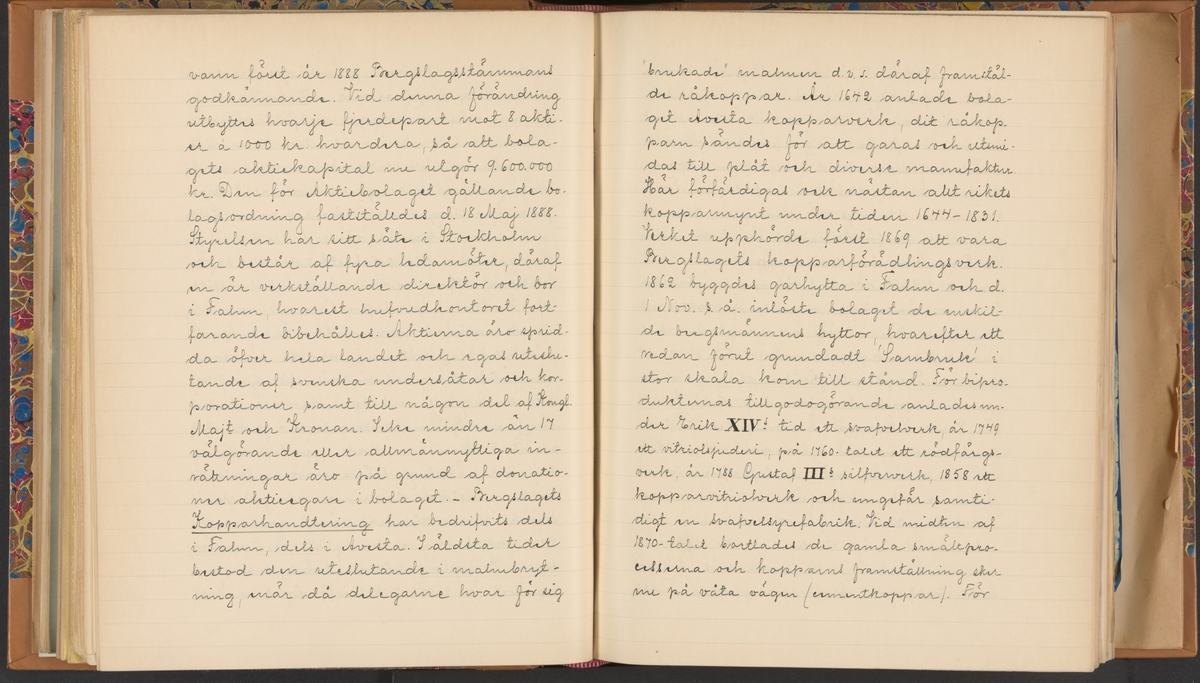 vann först år 1888 Bergslagsstämmans
godkännande. Vid denna förändring
utbyttes hvarje fjerdepart mot 8 akti-
er á 1000 kr. hvardera, så att bola-
gets aktiekapital nu utgör 9.600.000
kr. Den för Aktiebolaget gällande bo-
lagsordning fastställdes d. 18 Maj 1888.
Styrelsen har sitt säte i Stockholm
och består af fyra ledamöter, däraf
en är verkställande direktör och bor
i Falun, hvarest hufvudkontoret fort-
farande bibehålles. Aktierna äro sprid-
da öfver hela landet och egas uteslu-
tande af svenska undersåtar och kor-
porationer samt till någon del af Kongl.
Majt och Kronan. Icke mindre än 17
välgörande eller allmännyttiga in-
rättningar äro på grund af donatio-
ner aktieegare i bolaget. – Bergslagets
Kopparhandtering har bedrifvits dels
i Falun, dels i Avesta. I äldsta tider
bestod den uteslutande i malmbryt-
ning, när då delegarne hvar för sig
"brukade" malmen d.v.s. däraf framstäl-
de råkoppar. År 1642 anlade bola-
get Avesta kopparverk, dit råkop-
parn sändes för att garas och utsmi-
das till plåt och diverse manufaktur.
Här förfärdigas ock nästan allt rikets
kopparmynt under tiden 1644–1831.
Verket upphörde först 1869 att vara
Bergslagets kopparförädlingsverk.
1862 byggdes garhytta i Falun och d.
1 Nov. s. å. inlöste bolaget de enskil-
de bergsmännens hyttor, hvarefter ett
redan förut grundadt 'Sambruk' i
stor skala kom till stånd. För bipro-
dukternas tillgodogörande anlades un-
der Erik XIV:s tid ett svafvelverk, år 1749
ett vitriolsjuderi, på 1760-talet ett rödfärgs-
verk, år 1788 Gustaf III:s silfververk, 1858 ett
kopparvitriolverk och ungefär samti-
digt en svafvelsyrefabrik. Vid midten af
1870-talet bortlades de gamla smältpro-
cesserna och kopparns framställning sker
nu på våta vägen (cementkoppar). För